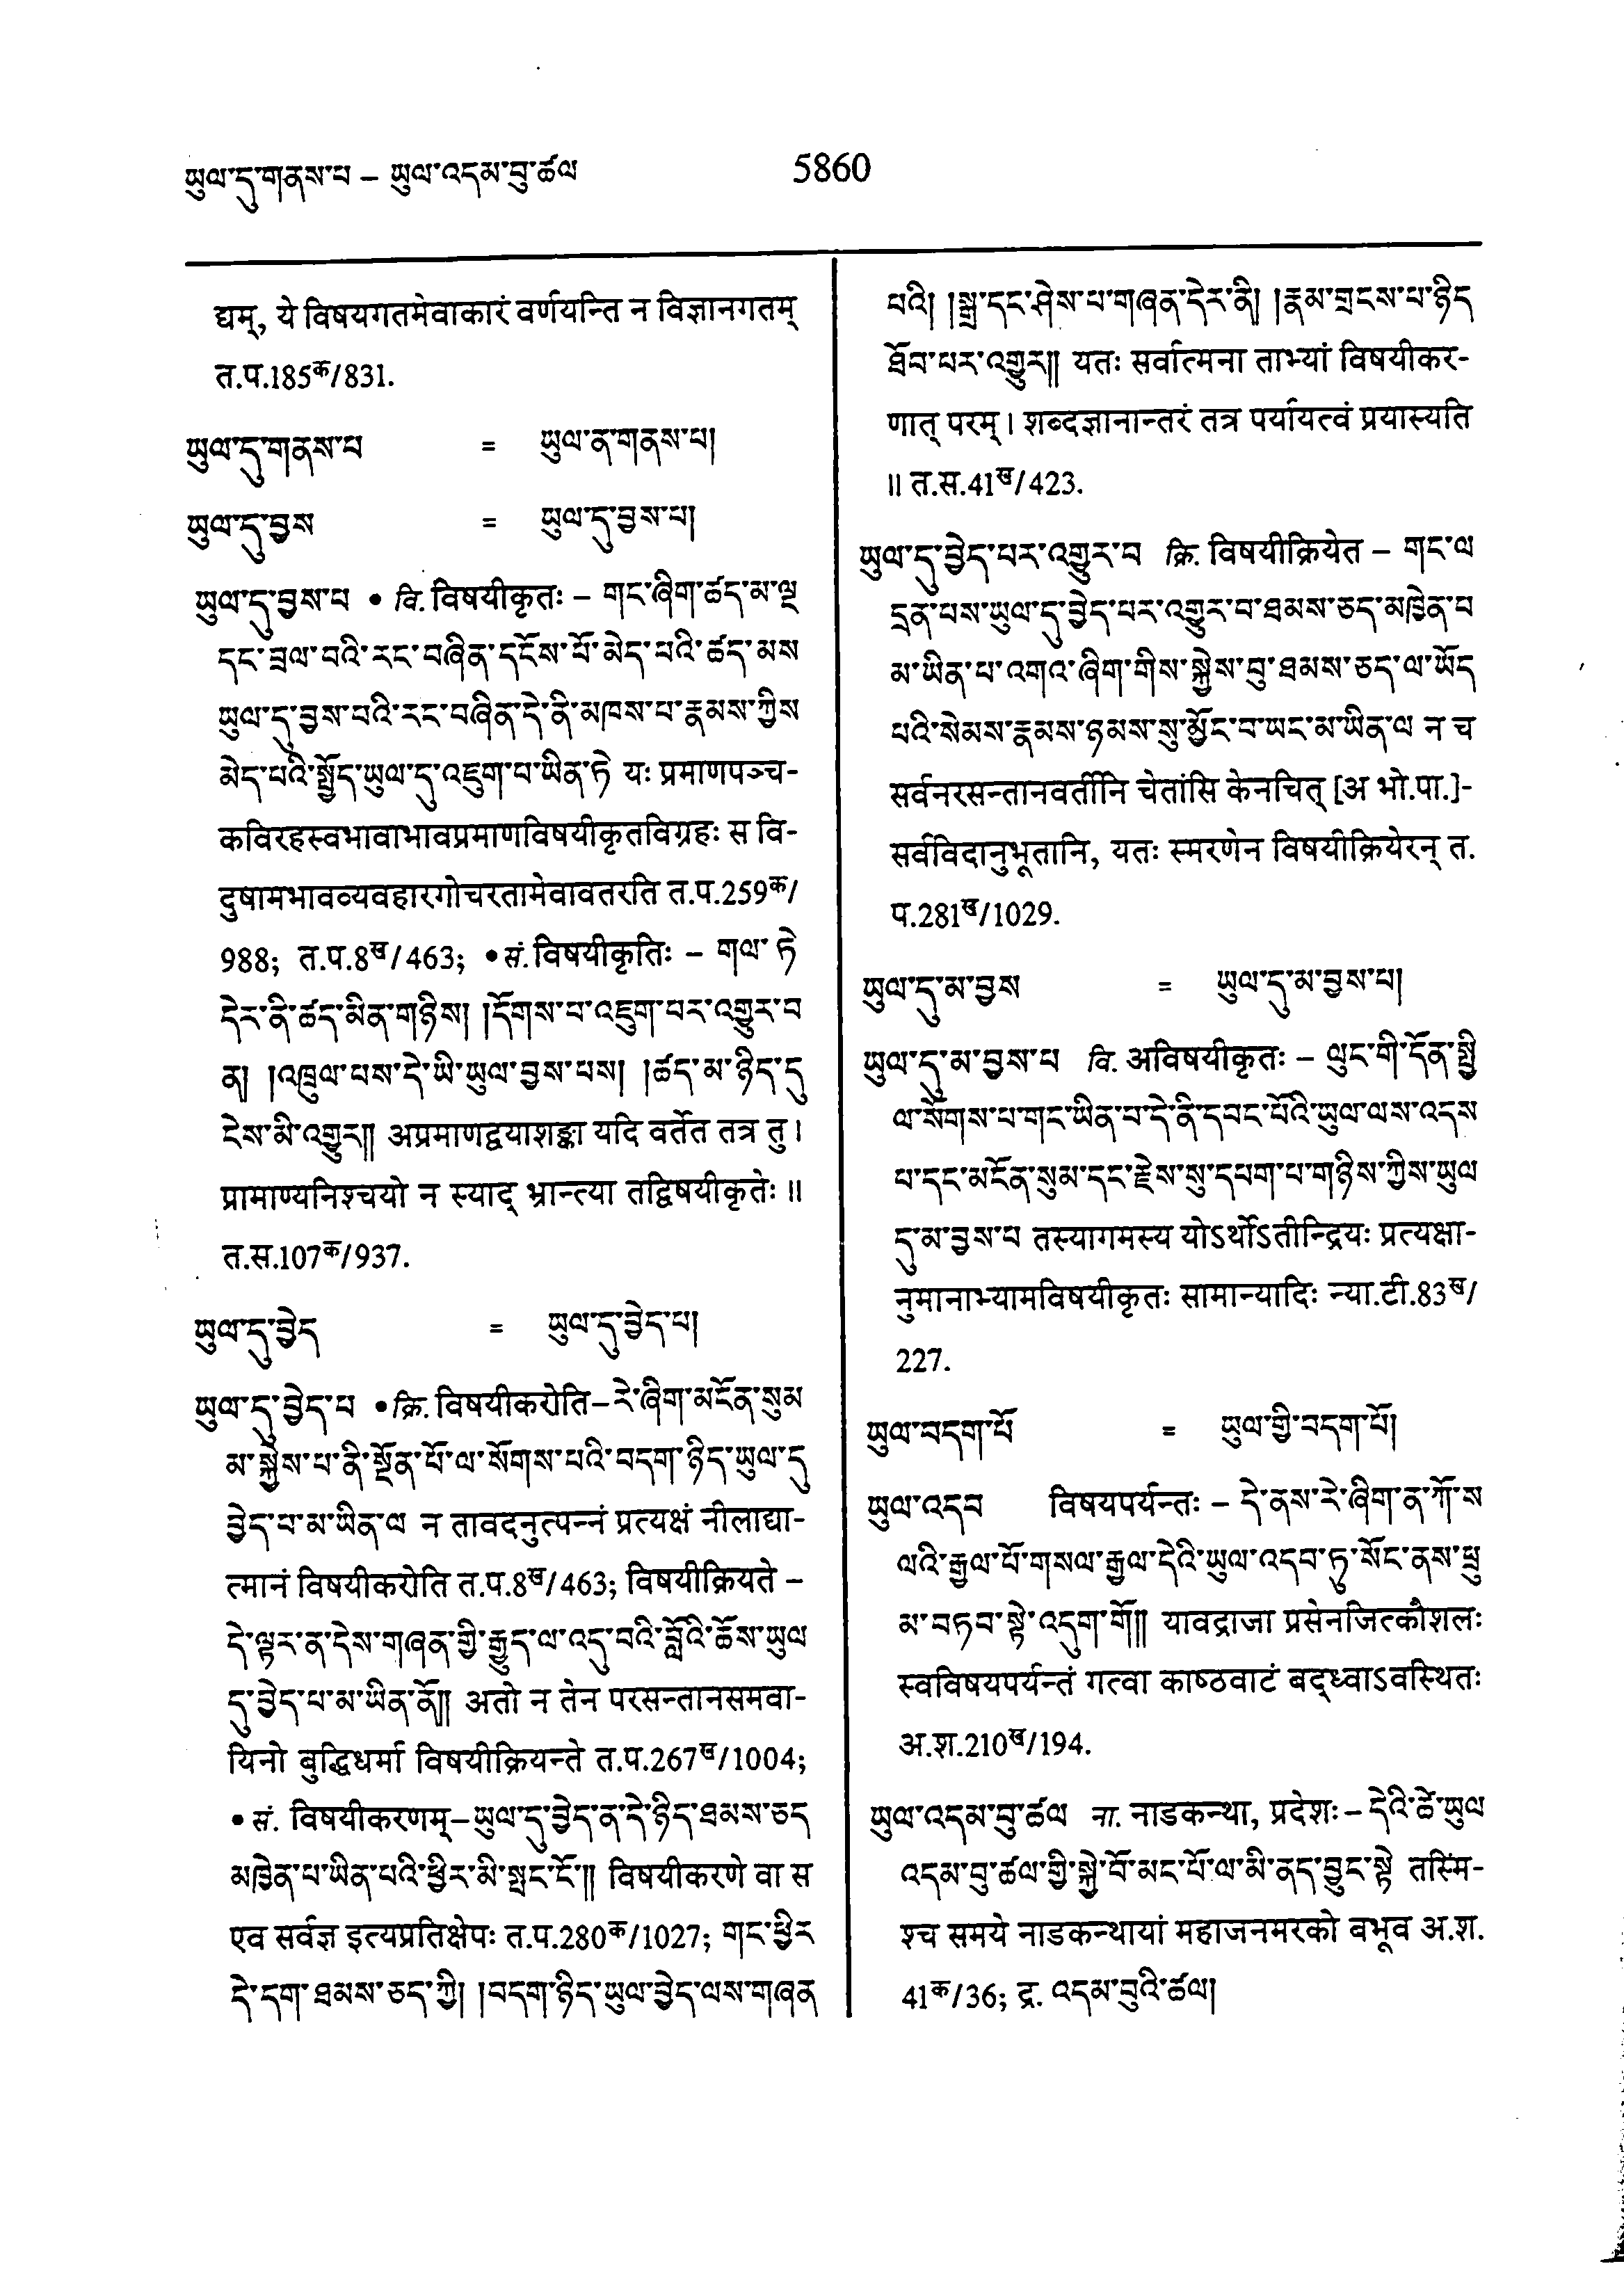 ཡུལ་དུ་གནས་པ – ཡུལ་འདམ་བུ་ཚལ
5860
द्यम्, ये विषयगतमेवाकारं वर्णयन्ति न विज्ञानगतम्
त.प.185क/831.
ཡུལ་དུ་གནས་པ = ཡུལ་ན་གནས་པ།
ཡུལ་དུ་བྱས = ཡུལ་དུ་བྱས་པ།
ཡུལ་དུ་བྱས་པ • वि. विषयीकृतः – གང་ཞིག་ཚད་མ་ལྔ
དང་བྲལ་བའི་རང་བཞིན་དངོས་པོ་མེད་པའི་ཚད་མས
ཡུལ་དུ་བྱས་པའི་རང་བཞིན་དེ་ནི་མཁས་པ་རྣམས་ཀྱིས
མེད་པའི་སྤྱོད་ཡུལ་དུ་འཇུག་པ་ཡིན་ཏེ यः प्रमाणपञ्च-
कविरहस्वभावाभावप्रमाणविषयीकृतविग्रहः स वि-
दुषामभावव्यवहारगोचरतामेवावतरति त.प.259क/
988; त.प.8ख/463; • सं. विषयीकृतिः – གལ་ ཏེ
དེར་ནི་ཚད་མིན་གཉིས། །དོགས་པ་འཇུག་པར་འགྱུར་བ
ན། །འཁྲུལ་པས་དེ་ཡི་ཡུལ་བྱས་པས། །ཚད་མ་ཉིད་དུ
ངེས་མི་འགྱུར།། अप्रमाणद्वयाशङ्का यदि वर्तेत तत्र तु।
प्रामाण्यनिश्चयो न स्याद् भ्रान्त्या तद्विषयीकृतेः॥
त.स.107क/937.
ཡུལ་དུ་བྱེད = ཡུལ་དུ་བྱེད་པ།
ཡུལ་དུ་བྱེད་པ • क्रि. विषयीकरोति – རེ་ཞིག་མངོན་སུམ
མ་སྐྱེས་པ་ནི་སྔོན་པོ་ལ་སོགས་པའི་བདག་ཉིད་ཡུལ་དུ
བྱེད་པ་མ་ཡིན་ལ न तावदनुत्पन्नं प्रत्यक्षं नीलाद्या-
त्मानं विषयीकरोति त.प.8ख/463; विषयीक्रियते –
དེ་ལྟར་ན་དེས་གཞན་གྱི་རྒྱུད་ལ་འདུ་བའི་བློའི་ཆོས་ཡུལ
དུ་བྱེད་པ་མ་ཡིན་ནོ།། अतो न तेन परसन्तानसमवा-
यिनो बुद्धिधर्मा विषयीक्रियन्ते त.प.267ख/1004;
• सं. विषयीकरणम् – ཡུལ་དུ་བྱེད་ན་དེ་ཉིད་ཐམས་ཅད
མཁྱེན་པ་ཡིན་པའི་ཕྱིར་མི་སྤང་ངོ་།། विषयीकरणे वा स
एव सर्वज्ञ इत्यप्रतिक्षेपः त.प.280क/1027; གང་ཕྱིར
དེ་དག་ཐམས་ཅད་ཀྱི། །བདག་ཉིད་ཡུལ་བྱེད་ལས་གཞན
པའི། །སྒྲ་དང་ཤེས་པ་གཞན་དེར་ནི། །རྣམ་གྲངས་པ་ཉིད
ཐོབ་པར་འགྱུར།། यतः सर्वात्मना ताभ्यां विषयीकर-
णात् परम्। शब्दज्ञानान्तरं तत्र पर्यायत्वं प्रयास्यति
॥ त.स.41ख/423.
ཡུལ་དུ་བྱེད་པར་འགྱུར་བ क्रि. विषयीक्रियेत – གང་ལ
དྲན་པས་ཡུལ་དུ་བྱེད་པར་འགྱུར་བ་ཐམས་ཅད་མཁྱེན་པ
མ་ཡིན་པ་འགའ་ཞིག་གིས་སྐྱེས་བུ་ཐམས་ཅད་ལ་ཡོད
པའི་སེམས་རྣམས་ཉམས་སུ་མྱོང་བ་ཡང་མ་ཡིན་ལ न च
सर्वनरसन्तानवर्तीनि चेतांसि केनचित् [अ भो.पा.]-
सर्वविदानुभूतानि, यतः स्मरणेन विषयीक्रियेरन् त.
प.281ख/1029.
ཡུལ་དུ་མ་བྱས = ཡུལ་དུ་མ་བྱས་པ།
ཡུལ་དུ་མ་བྱས་པ वि. अविषयीकृतः – ལུང་གི་དོན་སྤྱི
ལ་སོགས་པ་གང་ཡིན་པ་དེ་ནི་དབང་པོའི་ཡུལ་ལས་འདས
པ་དང་མངོན་སུམ་དང་རྗེས་སུ་དཔག་པ་གཉིས་ཀྱིས་ཡུལ
དུ་མ་བྱས་པ तस्यागमस्य योऽर्थोऽतीन्द्रियः प्रत्यक्षा-
नुमानाभ्यामविषयीकृतः सामान्यादिः न्या.टी.83ख/
227.
ཡུལ་བདག་པོ = ཡུལ་གྱི་བདག་པོ།
ཡུལ་འདབ विषयपर्यन्तः – དེ་ནས་རེ་ཞིག་ན་ཀོ་ས
ལའི་རྒྱལ་པོ་གསལ་རྒྱལ་དེའི་ཡུལ་འདབ་ཏུ་སོང་ནས་ཕྲུ
མ་བཏབ་སྟེ་འདུག་གོ།། यावद्राजा प्रसेनजित्कौशलः
स्वविषयपर्यन्तं गत्वा काष्ठवाटं बद्ध्वाऽवस्थितः
अ.श.210ख/194.
ཡུལ་འདམ་བུ་ཚལ ना. नाडकन्था, प्रदेशः – དེའི་ཚེ་ཡུལ
འདམ་བུ་ཚལ་གྱི་སྐྱེ་བོ་མང་པོ་ལ་མི་ནད་བྱུང་སྟེ तस्मिं-
श्च समये नाडकन्थायां महाजनमरको बभूव अ.श.
41क/36; द्र. འདམ་བུའི་ཚལ།